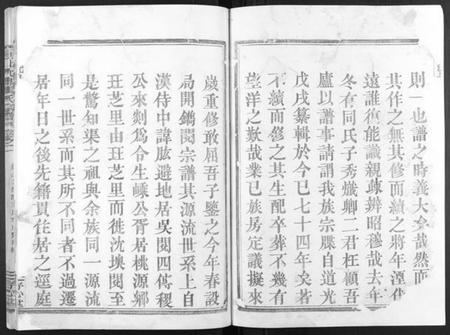 則一也譜之時義大矣哉然而
其作之無其修而續之將年湮代
遠誰復能識親疎辨昭穆哉去年
冬有同氏子秀熾卿二君枉顧吾
廬以譜事請謂我族宗牒自道光
戊戌纂輯於今已七十四年矣若
不續而修之其生配卒葬不幾有
望洋之歎哉業已族房定議擬來
歲重修敢屈吾子鑒之今年春設
局開鐫閱宗譜其源流世系上自
漢侍中諱肱避地居吳閱四傳稷
公來剡為令生嵊公胥居桃源鄉
玨芝里由玨芝里而徙沈墺閱至
是驚知渠之祖與余族同一源流
同一世系而其所不同者不過遷
居年日之後先籍貫住居之逕庭